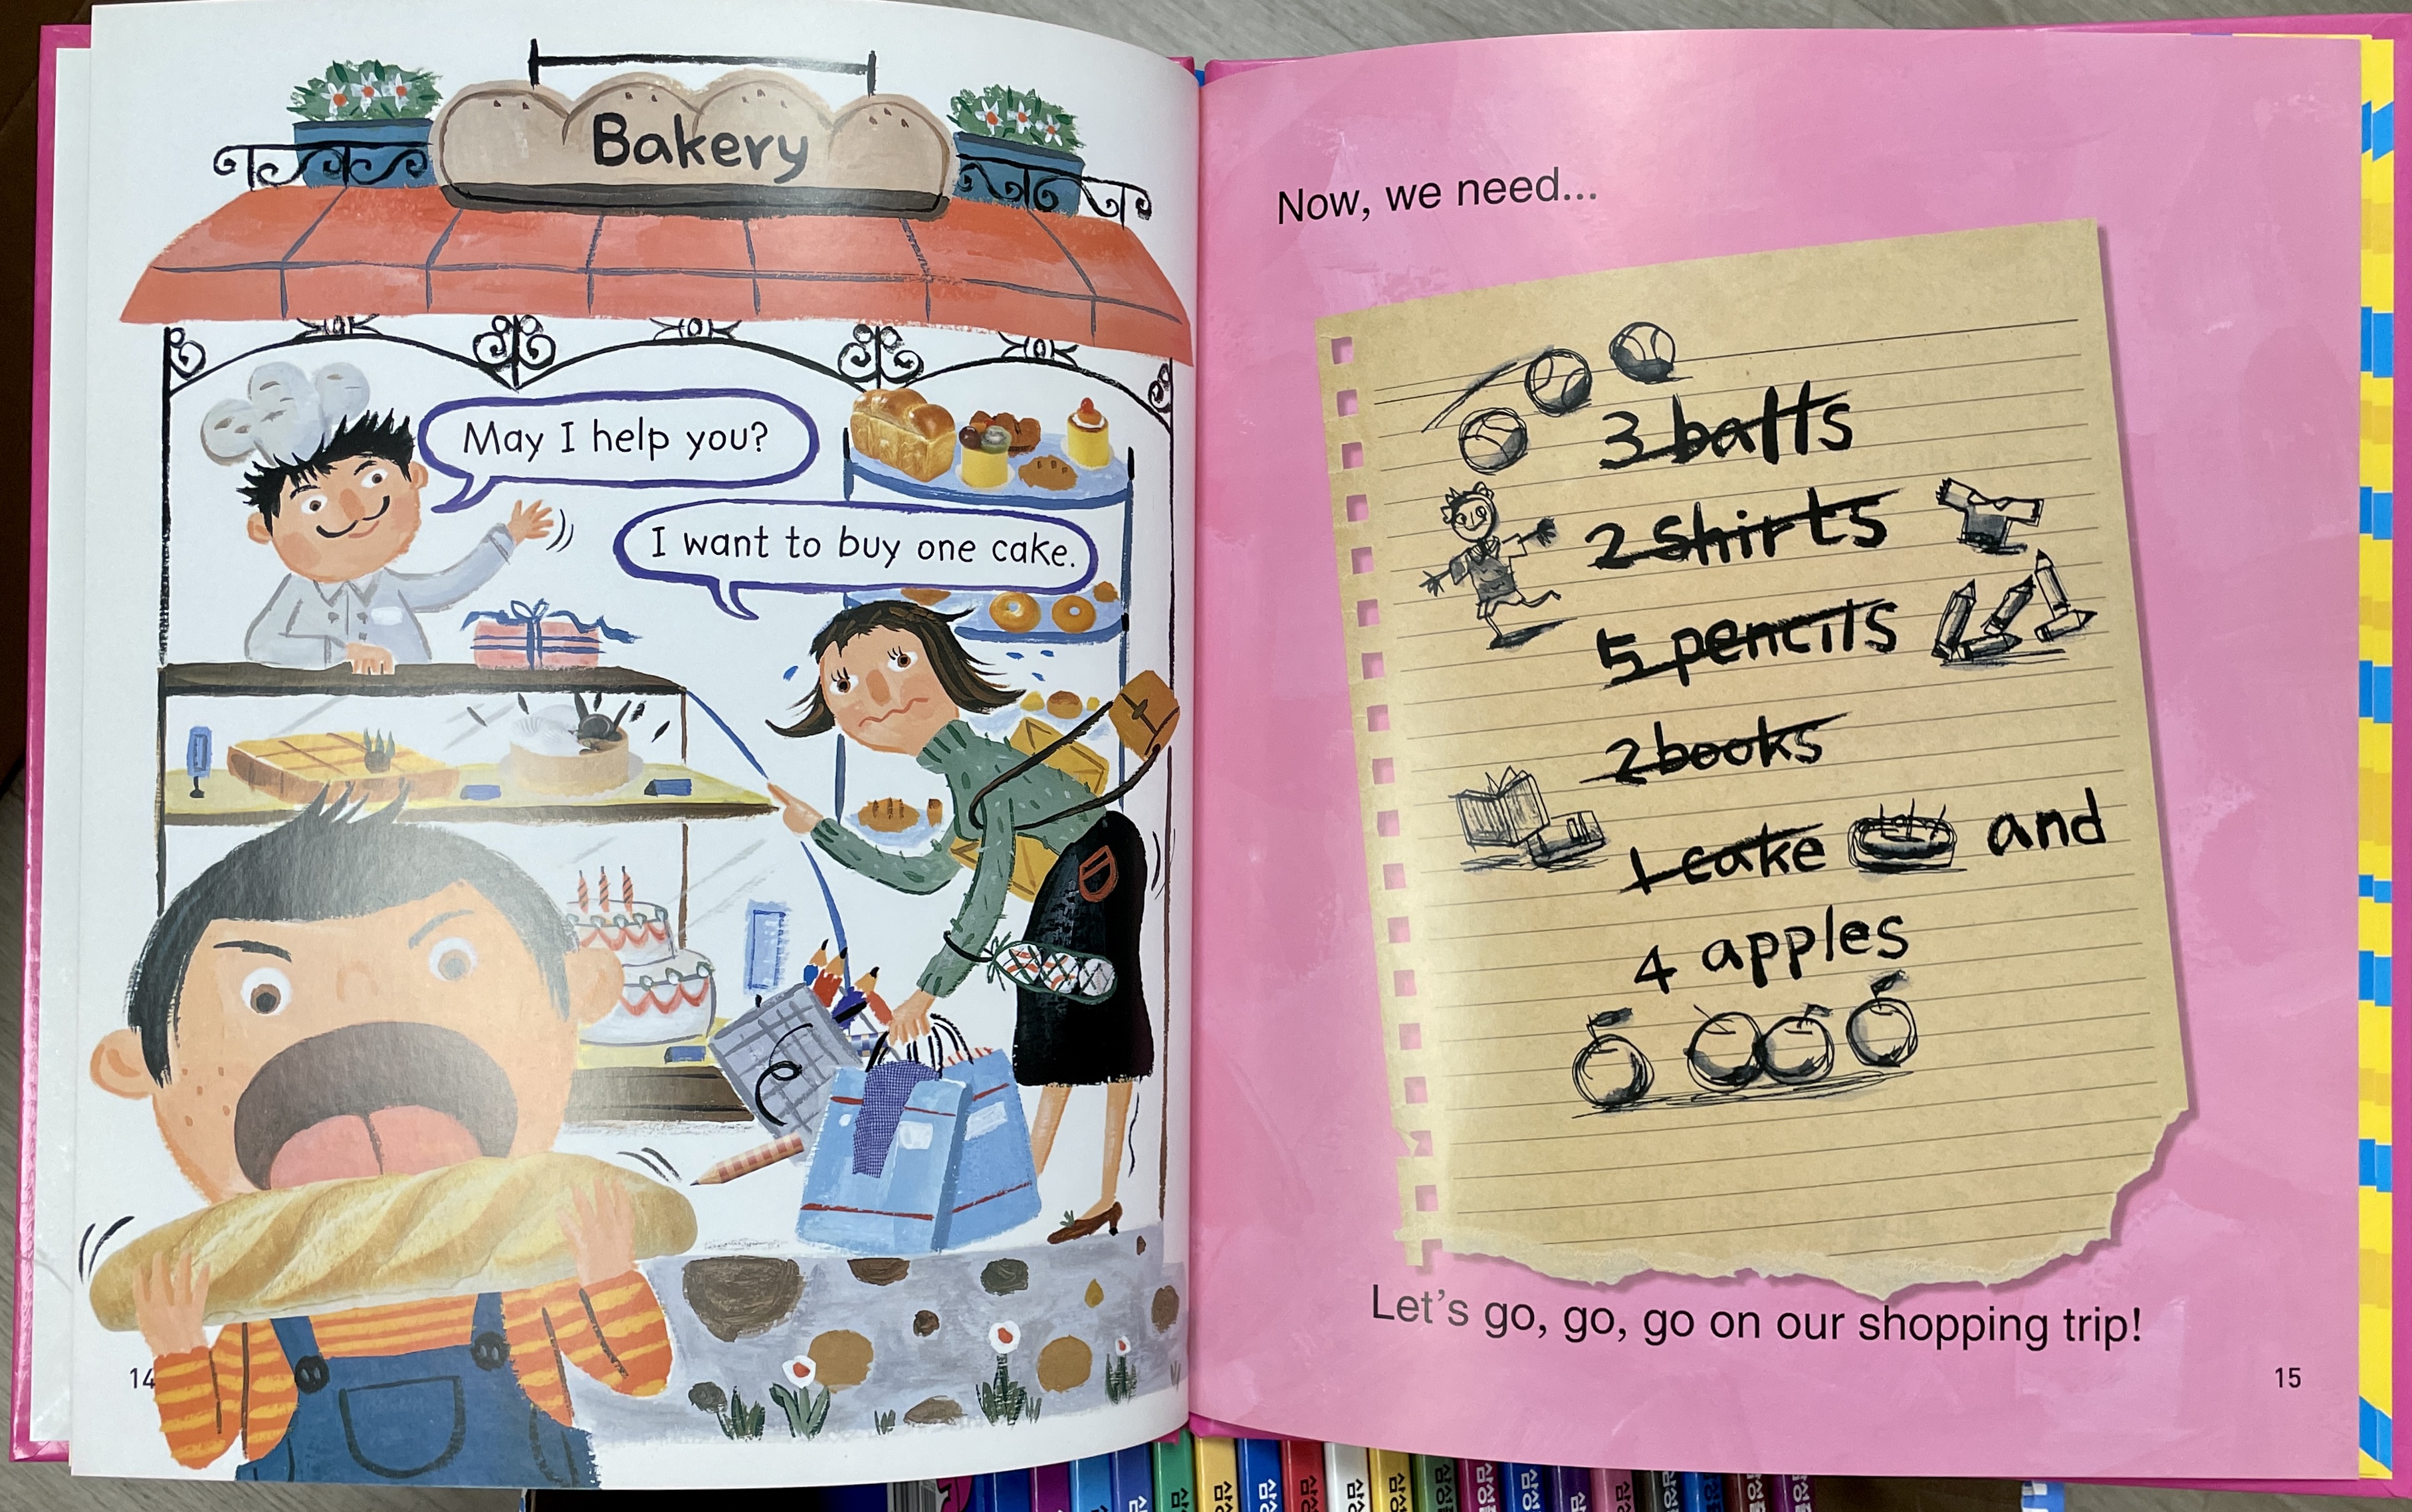 Bakery
May I help you?
I want to buy one cake.
14
Now, we need...
3 balls
2 shirts
5 pencils
2 books
1 cake and
4 apples
Let's go, go, go on our shopping trip!
15